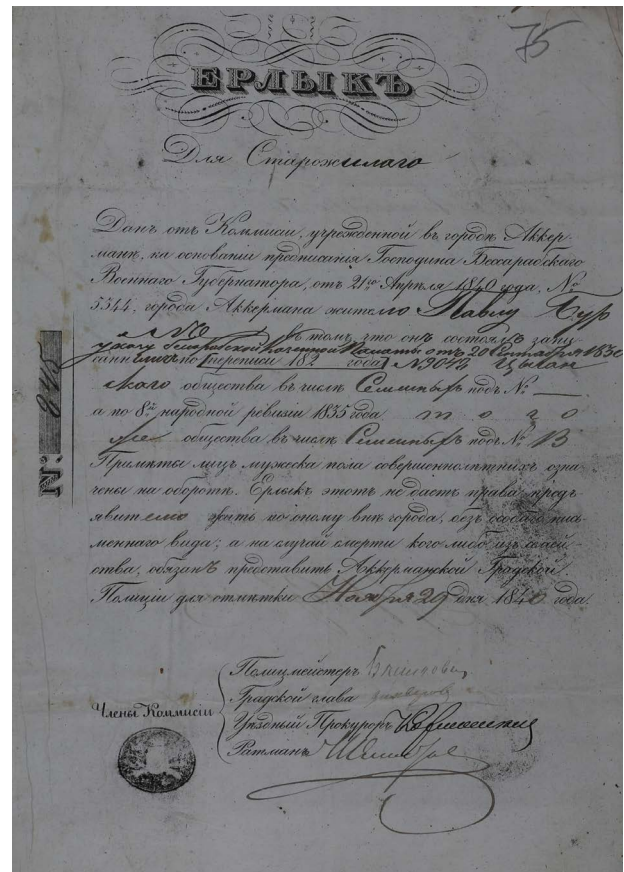 75
ЕРЛЫКЪ
Для Старожилаго
Данъ отъ Коммисіи, учрежденной въ городѣ Аккер-
манѣ, на основаніи предписанія Господина Бессарабскаго
Военнаго Губернатора, отъ 21го Апрѣля 1840 года, №
5344, города Аккермана жителю Павлу Бур
въ томъ, что онъ состоялъ запи
саннымъ по переписи 182 года № 9042 Цыган
скаго общества въ числѣ Семейныхъ подъ №: —
а по 8й народной ревизіи 1835 года того
же общества въ числѣ Семейныхъ подъ №: 13
Примѣты лицъ мужеска пола совершеннолѣтнихъ озна-
чены на оборотѣ. Ерлыкъ этотъ не даетъ права предъ
явителю жить по оному внѣ города, безъ особаго пись-
меннаго вида; а на случай смерти кого либо изъ семей-
ства, обязанъ представить Аккерманской Градской
Полиціи для отмѣтки Ноября 29 дня 1840 года.
№: 548
Члены Коммисіи
Полицмейстеръ
Градской глава
Уѣздный Прокуроръ
Ратманъ